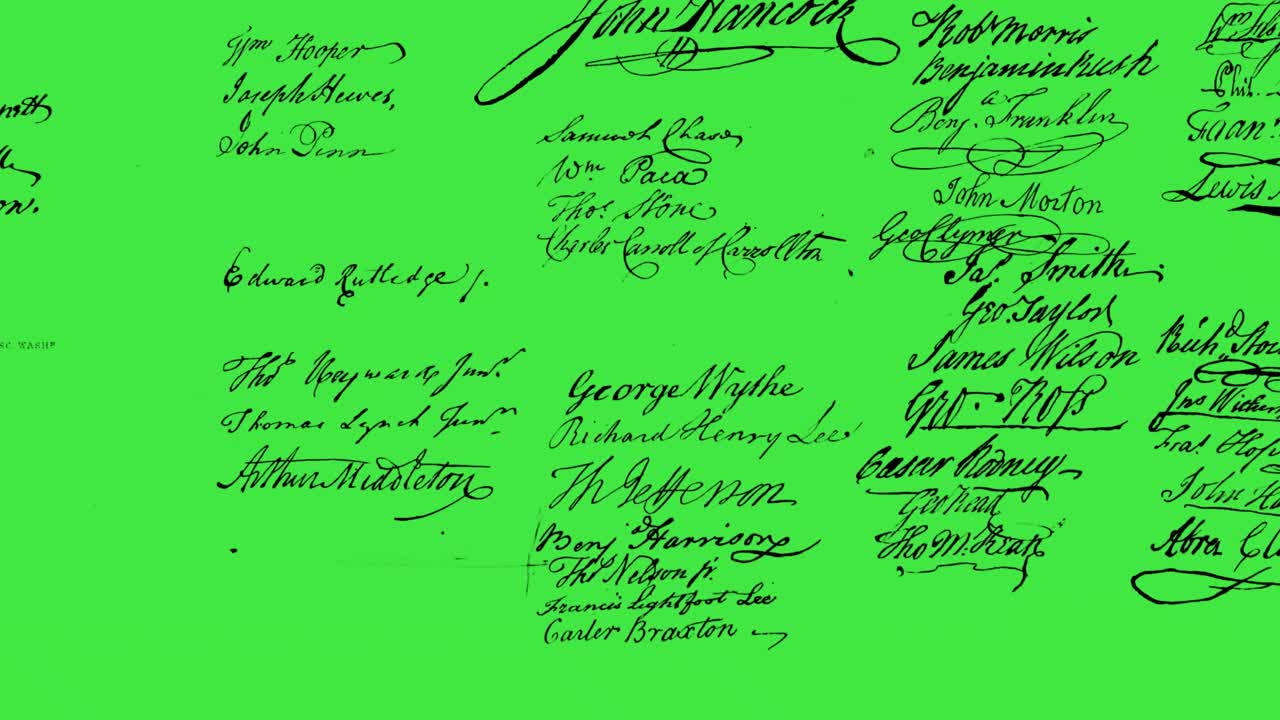 Wm Hooper
Joseph Hewes,
John Penn
Edward Rutledge /.
Thos Heyward Junr.
Thomas Lynch Junr.
Arthur Middleton
SC. WASHN
John Hancock
Samuel Chase
Wm. Paca
Thos. Stone
Charles Carroll of Carrollton
George Wythe
Richard Henry Lee
Th Jefferson
Benja Harrison
Thos Nelson jr.
Francis Lightfoot Lee
Carter Braxton
Robt Morris
Benjamin Rush
Benja. Franklin
John Morton
Geo Clymer
Jas. Smith
Geo. Taylor
James Wilson
Geo. Ross
Caesar Rodney
Geo Read
Tho M.Kean
Phil.
Lewis
Richd. Stoc
Fras. Hop
John Ha
Abra Cla